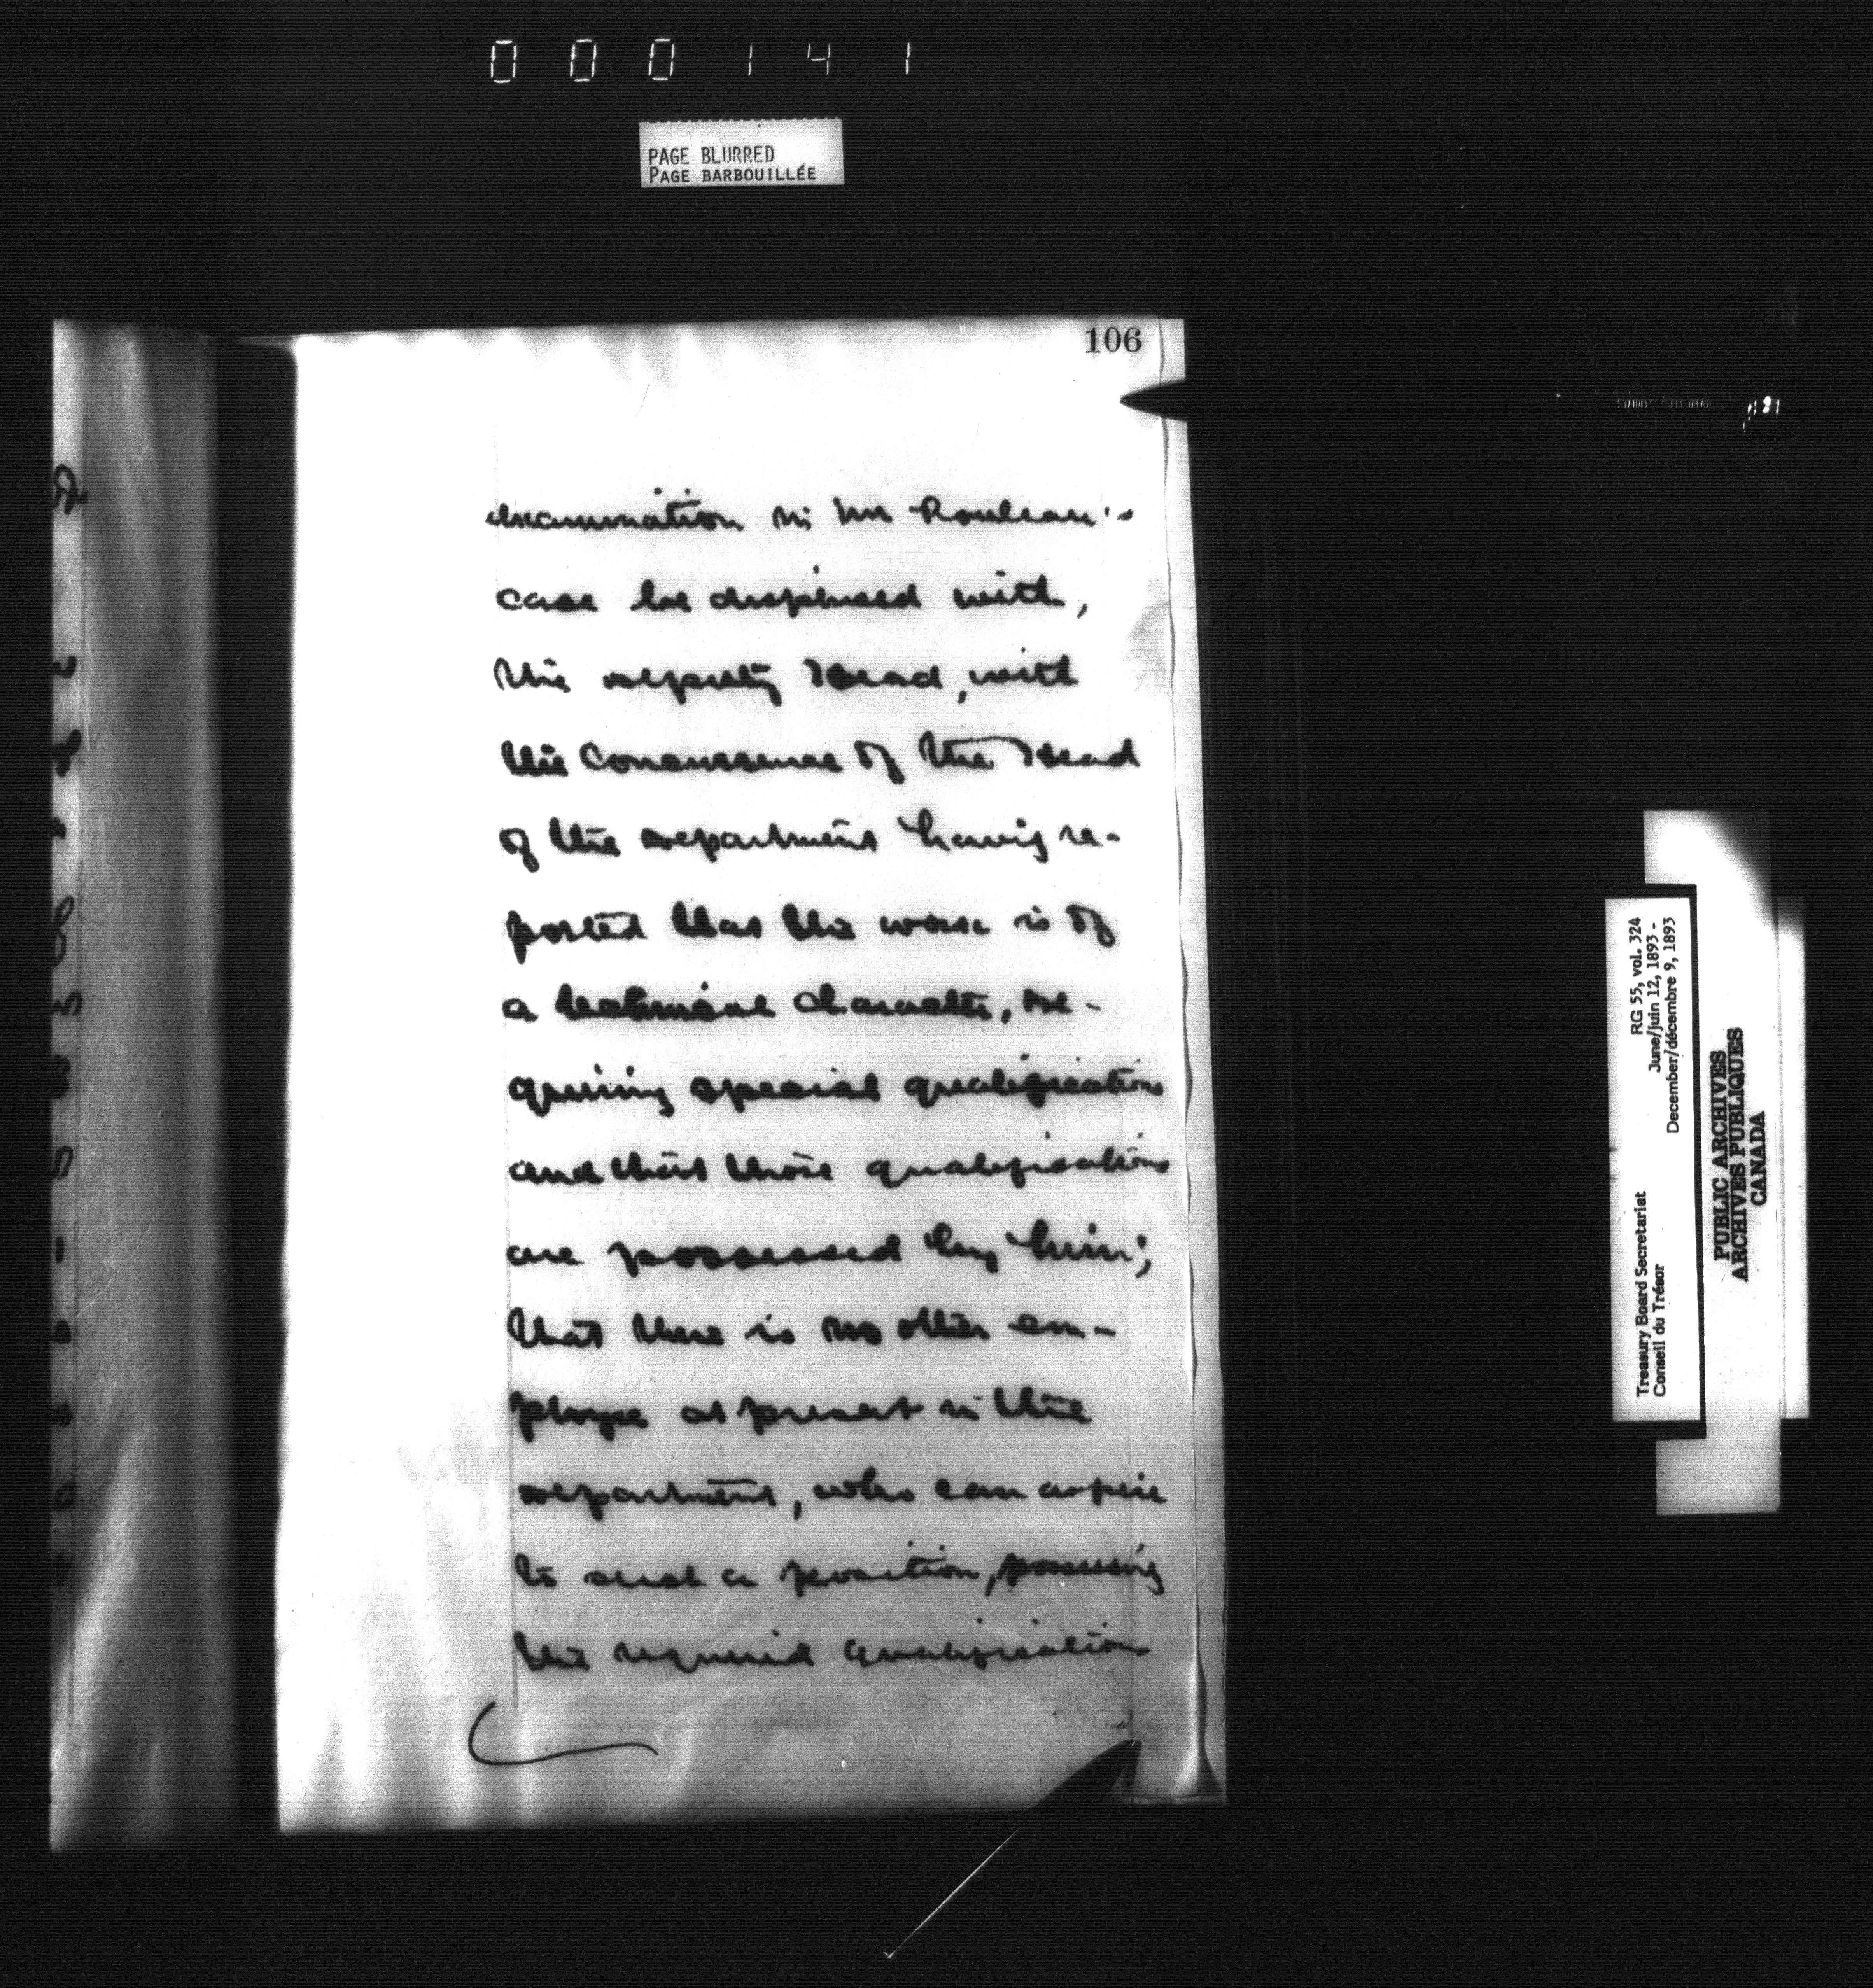 000141
PAGE BLURRED
PAGE BARBOUILLÉE
106
examination in Mr Rouleau's
case be dispensed with,
the deputy Head, with
the concurrence of the Head
of the department having re-
ported that the work is of
a technical character, re-
quiring special qualifications
and that those qualifications
are possessed by him;
that there is no other em-
ployee at present in the
department, who can aspire
to such a position, possessing
the required qualifications
Treasury Board Secretariat
Conseil du Trésor
RG 55, vol. 324
June/juin 12, 1893 -
December/décembre 9, 1893
PUBLIC ARCHIVES
ARCHIVES PUBLIQUES
CANADA